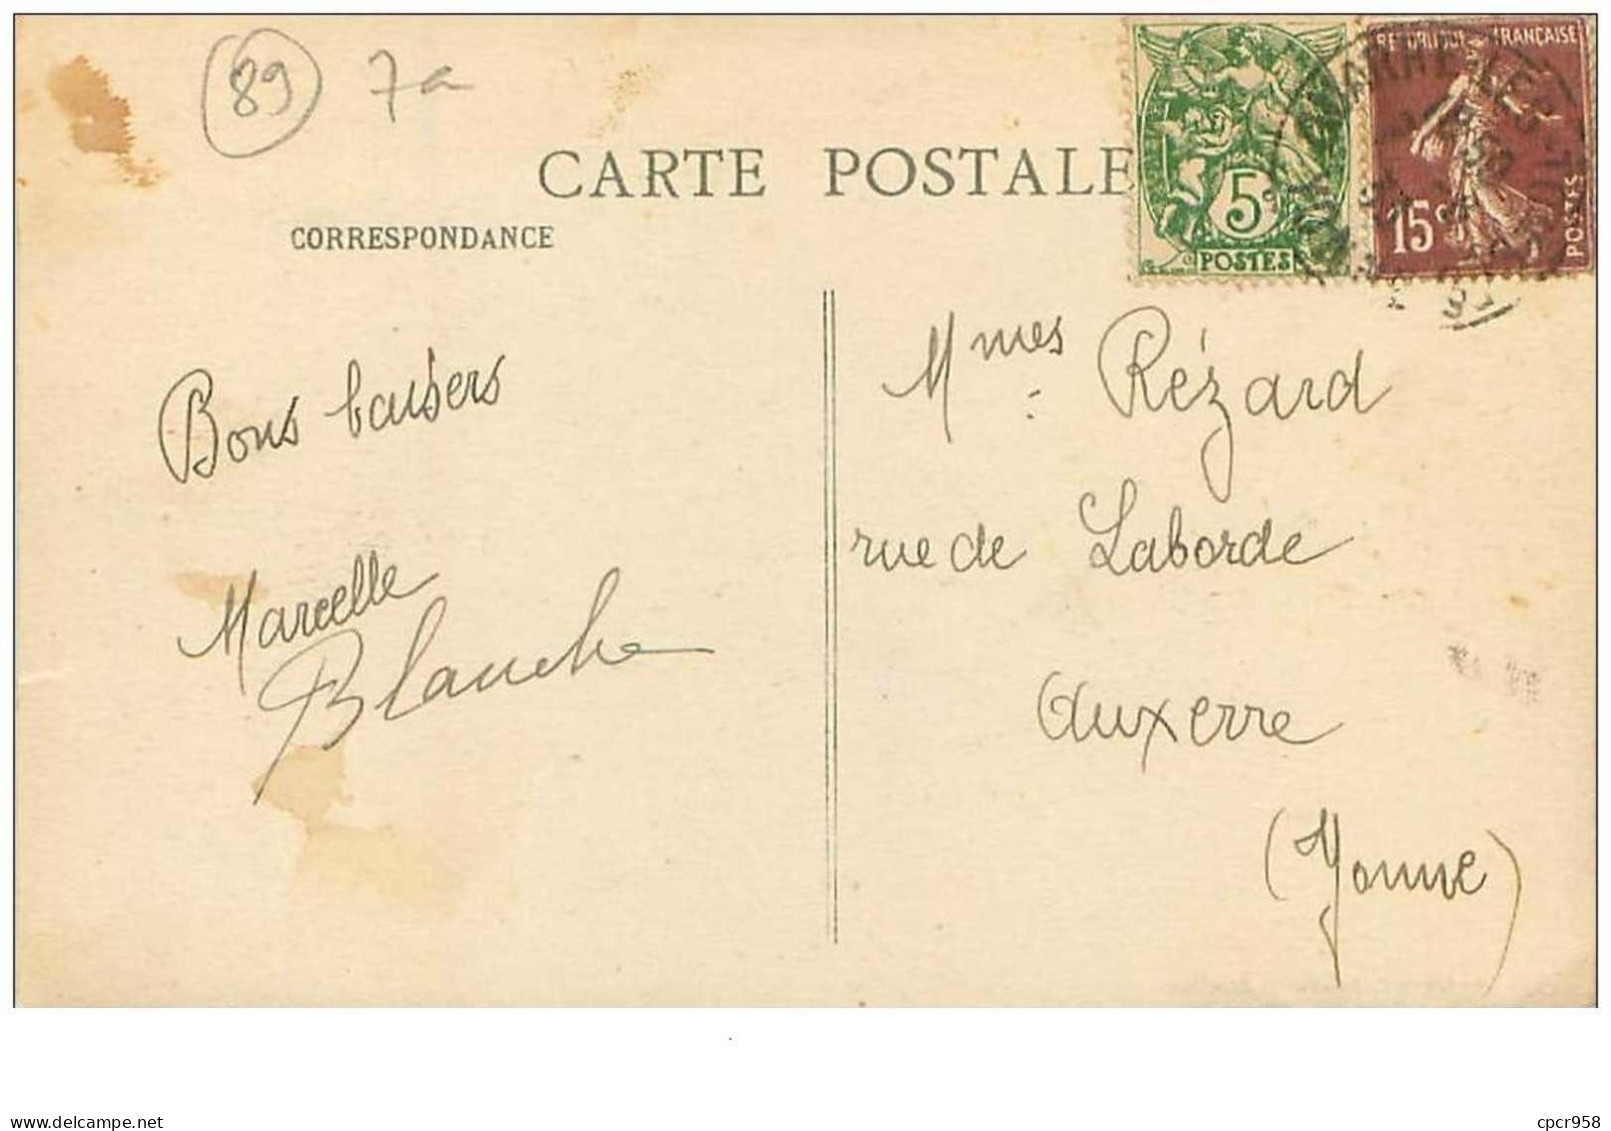 89 7a
CARTE POSTALE
CORRESPONDANCE
5
POSTES
REPUBLIQUE FRANÇAISE
15c
POSTES
Bons baisers
Marcelle
Blanche
Mmes Rézard
rue de Laborde
Auxerre
(Yonne)
www.delcampe.net
cpcr958